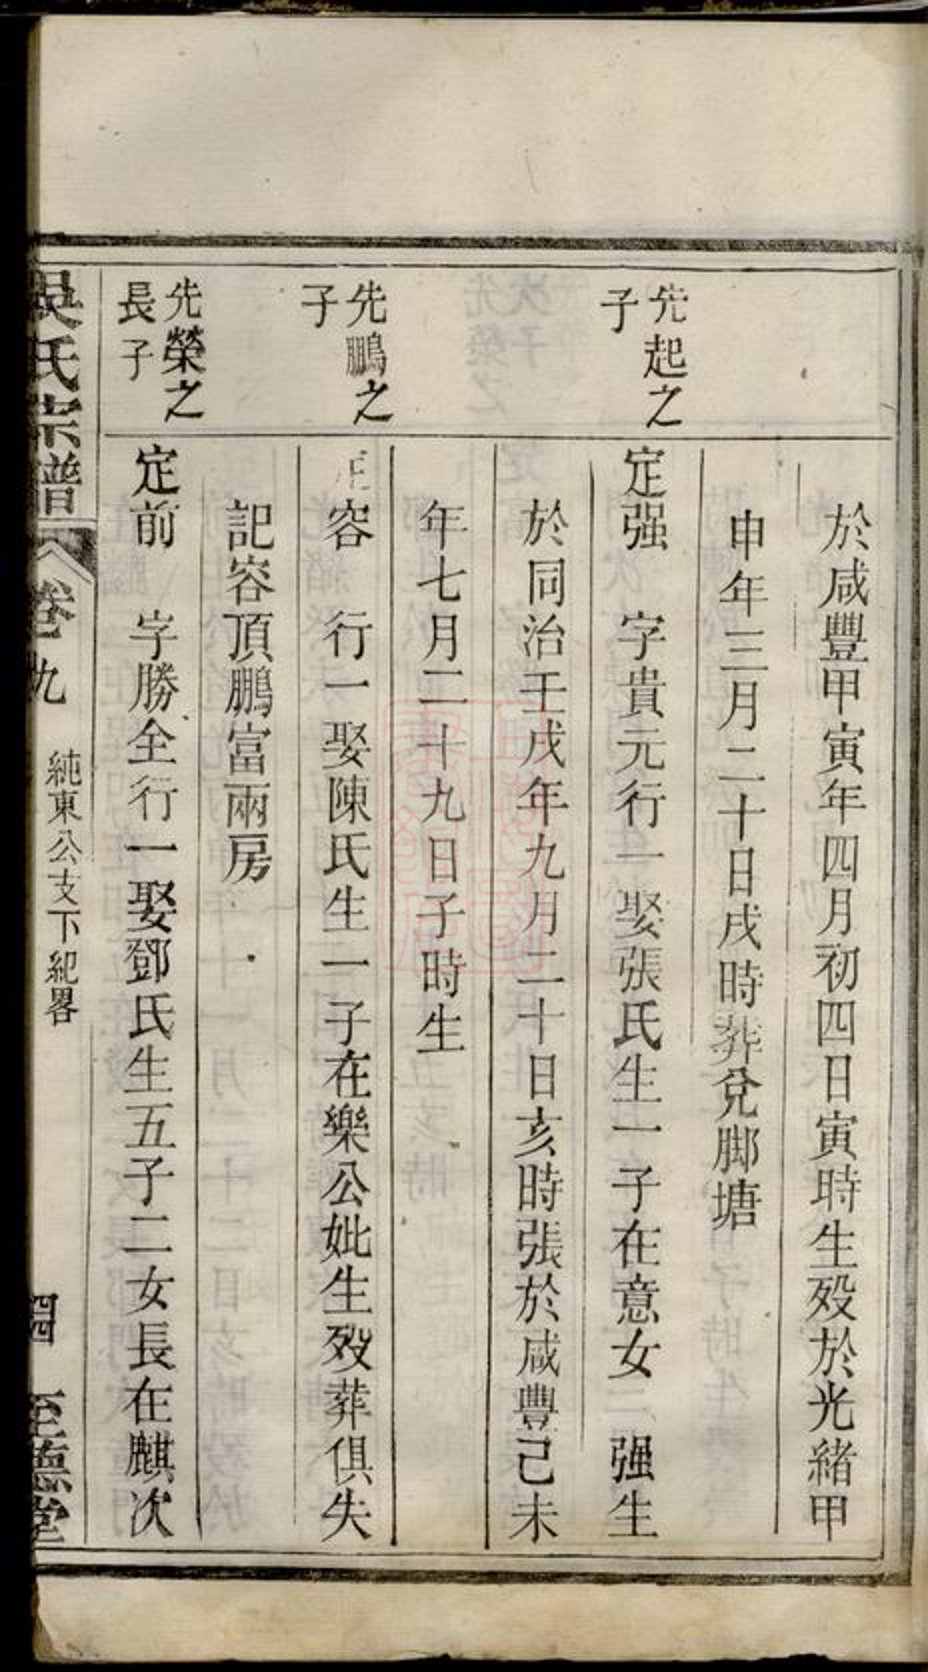 於咸豐甲寅年四月初四日寅時生歿於光緒甲
申年三月二十日戌時葬兌脚塘
先起之
子
定强 字貴元行一娶張氏生一子在意女一强生
於同治壬戌年九月二十日亥時張於咸豐己未
年七月二十九日子時生
先鵬之
子
定容 行一娶陳氏生一子在樂公妣生歿葬俱失
記容頂鵬富兩房
先榮之
長子
定前 字勝全行一娶鄧氏生五子二女長在麒次
吳氏宗譜 卷九 純東公支下紀畧 四 至德堂